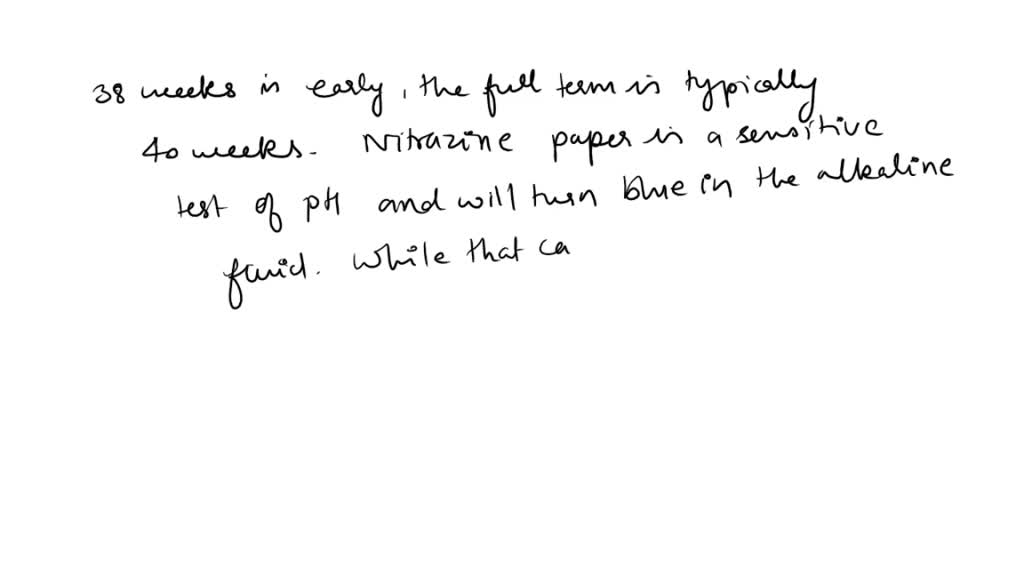 38 weeks is early, the full term is typically
40 weeks. Nitrazine paper is a sensitive
test of pH and will turn blue in the alkaline
fluid. While that ca